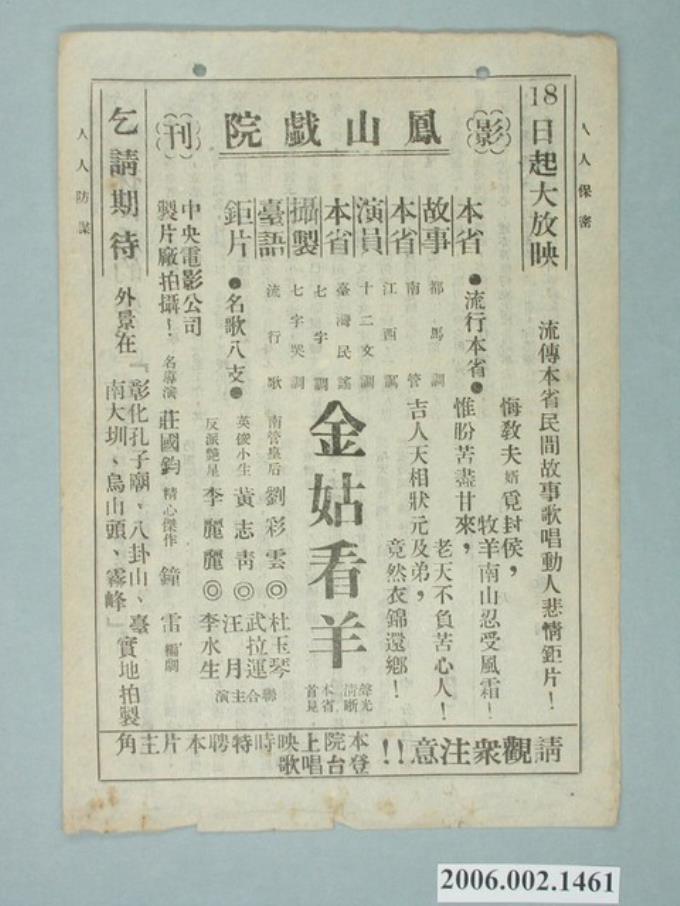 人人保密
18日起大放映
影刊
鳳山戯院
乞請期待
人人防諜
流傳本省民間故事歌唱動人悲情鉅片！
悔教夫婿覓封侯，
牧羊南山忍受風霜！
惟盼苦盡甘來，
老天不負苦心人！
吉人天相狀元及弟，
竟然衣錦還鄉！
本省故事
本省演員
本省攝製
臺語鉅片
●流行本省●
都馬調
南管
江西調
十二文調
臺灣民謠
七字調
七字哭調
流行歌
●名歌八支●
金姑看羊
聲光清晰
本省首見
南管皇后 劉彩雲◎杜玉琴
武拉運
英俊小生 黃志青◎汪月
反派艷星 李麗麗◎李水生
聯合主演
中央電影公司
製片廠拍攝！
名導演 莊國鈞 精心傑作
鐘雷 編劇
外景在『彰化孔子廟、八卦山、臺南大圳、烏山頭、霧峰』實地拍製
請觀衆注意!!
本院上映時特聘本片主角登台唱歌
2006.002.1461